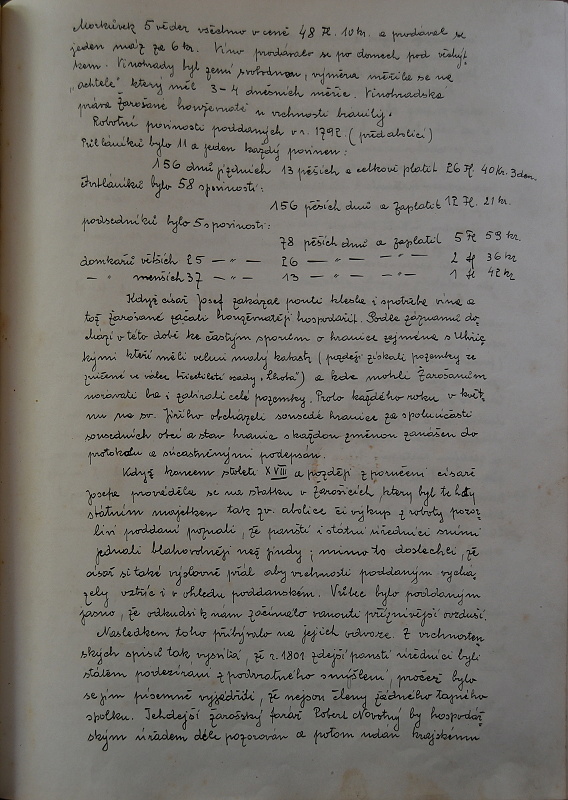 Morkůvek 5 věder všechno v ceně 48 Fl. 10 kr. a prodával se
jeden máz za 6 kr. Víno prodávalo se po domech pod věchýt-
kem. Vinohrady byl zemí svobodnou, výměra měřila se na
„achtele" který měl 3-4 dnešních měřic. Vinohradská
práva Žarošané houževnatě u vrchnosti hránili.
Robotní povinosti poddaných v r. 1792. (před abolicí)
Půlláníků bylo 11 a jeden každý povinen:
156 dnů jízdních 13 pěších a celkově platil 26 Fl. 40 Kr. 3 den.
Čtvrtláníků bylo 58 s povinností:
156 pěších dnů a zaplatit 12 Fl. 21 kr.
podsedníků bylo 5 s povinností:
78 pěších dnů a zaplatil 5 Fl 59 kr.
domkařů větších 25 — „ — 26 — „ — — „ — 2 fl 36 kr
— „ — menších 37 — „ — 13 — „ — — „ — 1 fl 42 kr
Když císař Josef zakázal poutí klesla i spotřeba vína a
tož Žarošané začali houževnatěji hospodařit. Podle záznamů do-
chází v této době ke častým sporům o hranice zejména s Uhřic-
kými kteří měli velmi malý katastr (později získali pozemky ze
zničené ve válce třicetileté osady „Lhota") a kde mohli Žarošanům
naorávati ba i zabírali celé pozemky. Proto každého roku v květ-
nu na sv. Jiřího obcházeli sousedé hranice za spoluúčasti
sousedních obcí a stav hranic s každou změnou zanášen do
protokolu a súčastněnými podepsán.
Když koncem století XVIII a později z poručení císaře
Josefa prováděla se na statku v Žarošicích, který byl tehdy
státním majetkem tak zv. abolice čili výkup z roboty pozor-
liví poddaní poznali, že panští i státní úředníci s nimi
jednali blahovolněji než jindy; mimo to doslechli, že
císař si také výslovně přál aby vrchnosti poddaným vychá-
zely vstříc i v ohledu poddanském. Vůbec bylo poddaným
jasno, že odkudsi k nám začínalo vanouti příznivější ovzduší.
Následkem toho přibývalo na jejich odvaze. Z vrchnosten-
ských spisů tak vysvítá, že r. 1801 zdejší panští úředníci byli
stálem podezíráni z podvratného smýšlení, pročež bylo
se jim písemně vyjádřiti, že nejsou členy žádného tajného
spolku. Tehdejší žarošský farář Robert Novotný by hospodář-
ským úřadem déle pozorován a potom udán krajskému